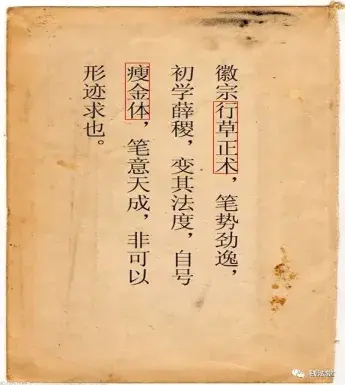 徽宗行草正术，笔势劲逸，
初学薛稷，变其法度，自号
瘦金体，笔意天成，非可以
形迹求也。